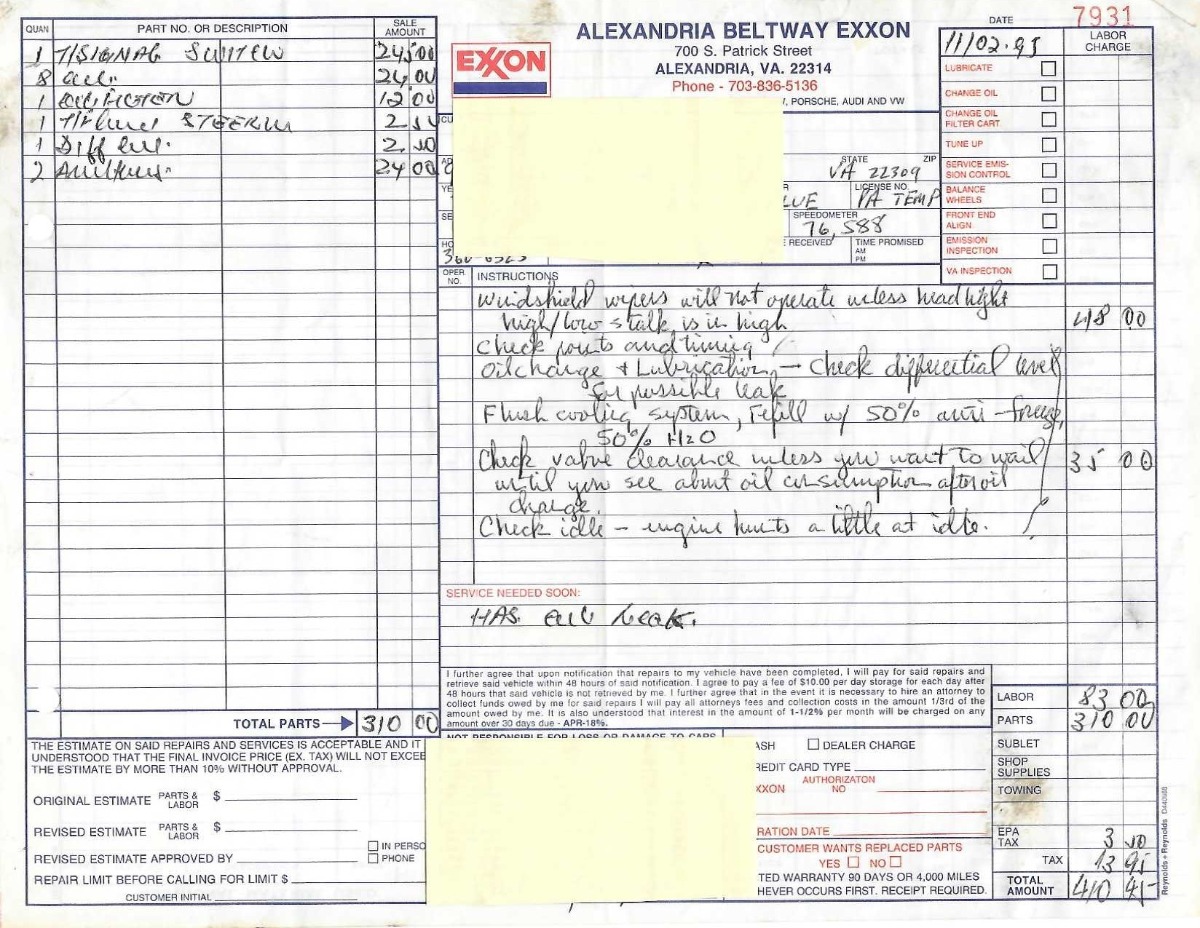 7931
ALEXANDRIA BELTWAY EXXON
700 S. Patrick Street
ALEXANDRIA, VA. 22314
Phone - 703-836-5136
, PORSCHE, AUDI AND VW
EXXON
DATE
11/02.95
LABOR CHARGE
LUBRICATE
CHANGE OIL
CHANGE OIL FILTER CART
TUNE UP
SERVICE EMISSION CONTROL
BALANCE WHEELS
FRONT END ALIGN
EMISSION INSPECTION
VA INSPECTION
QUAN PART NO. OR DESCRIPTION SALE AMOUNT
1 T/SIGNAL SWITCH 245 00
8 OIL 24 00
1 12 00
1 2 50
1 Diff 2.50
2 24 00
TOTAL PARTS 310 00
STATE ZIP
VA 22309
LICENSE NO.
LUE VA TEMP
SPEEDOMETER
76,588
RECEIVED TIME PROMISED
AM
PM
OPER NO. INSTRUCTIONS
Windshield wipers will not operate unless headlight
high/low stalk is in high 48 00
Check points and timing
Oil change + Lubrication — Check differential level
for possible leak
Flush cooling system, refill w/ 50% anti-freeze,
50% H2O
Check valve clearance unless you want to wait 35 00
until you see about oil consumption after oil
change.
Check idle – engine hunts a little at idle.
SERVICE NEEDED SOON:
HAS OIL LEAK.
I further agree that upon notification that repairs to my vehicle have been completed, I will pay for said repairs and
retrieve said vehicle within 48 hours of said notification. I agree to pay a fee of $10.00 per day storage for each day after
48 hours that said vehicle is not retrieved by me. I further agree that in the event it is necessary to hire an attorney to
collect funds owed by me for said repairs I will pay all attorneys fees and collection costs in the amount 1/3rd of the
amount owed by me. It is also understood that interest in the amount of 1-1/2% per month will be charged on any
amount over 30 days due - APR-18%.
NOT RESPONSIBLE FOR LOSS OR DAMAGE TO CARS
THE ESTIMATE ON SAID REPAIRS AND SERVICES IS ACCEPTABLE AND IT
UNDERSTOOD THAT THE FINAL INVOICE PRICE (EX. TAX) WILL NOT EXCEE
THE ESTIMATE BY MORE THAN 10% WITHOUT APPROVAL.
ORIGINAL ESTIMATE PARTS & LABOR $
REVISED ESTIMATE PARTS & LABOR $
IN PERSO
REVISED ESTIMATE APPROVED BY PHONE
REPAIR LIMIT BEFORE CALLING FOR LIMIT $
CUSTOMER INITIAL
ASH DEALER CHARGE
REDIT CARD TYPE
XXON AUTHORIZATON NO
RATION DATE
CUSTOMER WANTS REPLACED PARTS
YES NO
TED WARRANTY 90 DAYS OR 4,000 MILES
HEVER OCCURS FIRST. RECEIPT REQUIRED.
LABOR 83 00
PARTS 310 00
SUBLET
SHOP SUPPLIES
TOWING
EPA TAX 3 50
TAX 13 95
TOTAL AMOUNT 410 45
Reynolds + Reynolds